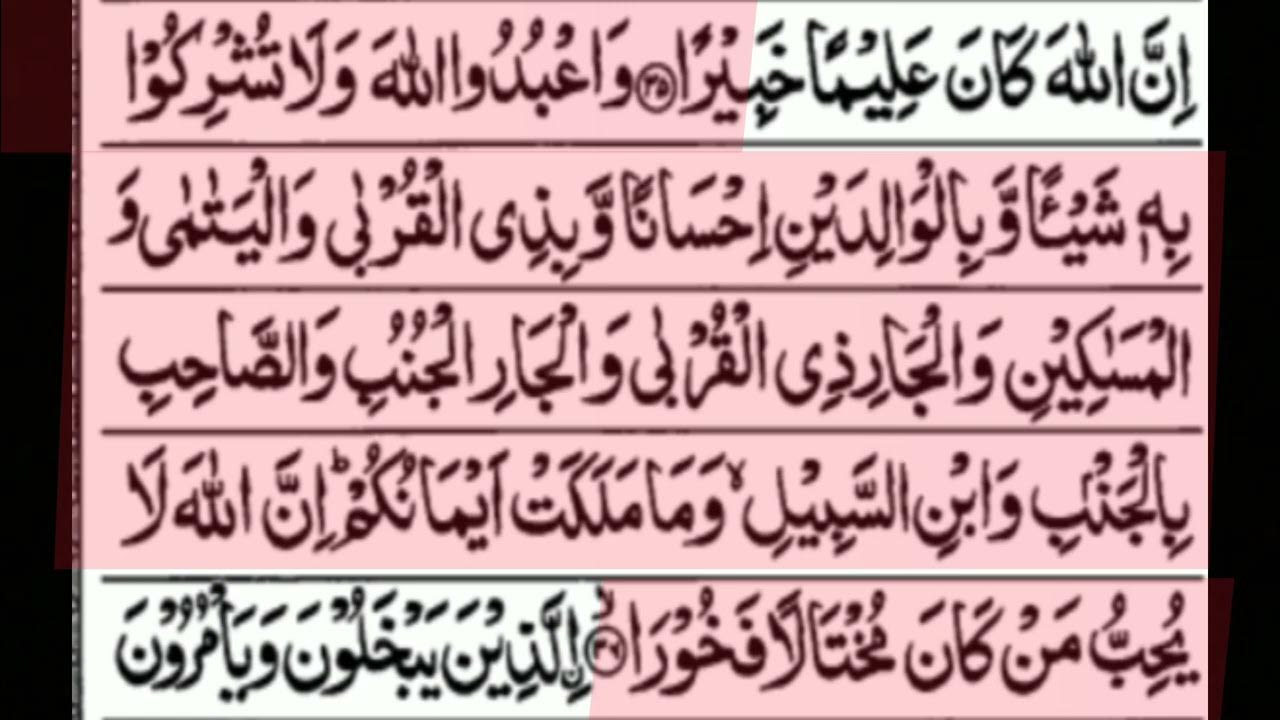 اِنَّ اللّٰهَ كَانَ عَلِيْمًا خَبِيْرًا ۝۳۵ وَاعْبُدُوا اللّٰهَ وَلَا تُشْرِكُوْا
بِهٖ شَيْـًٔا وَّ بِالْوَالِدَيْنِ اِحْسَانًا وَّ بِذِى الْقُرْبٰى وَالْيَتٰمٰى وَ
الْمَسٰكِيْنِ وَالْجَارِ ذِى الْقُرْبٰى وَالْجَارِ الْجُنُبِ وَالصَّاحِبِ
بِالْجَنْۢبِ وَابْنِ السَّبِيْلِ ۙ وَمَا مَلَكَتْ اَيْمَانُكُمْ ؕ اِنَّ اللّٰهَ لَا
يُحِبُّ مَنْ كَانَ مُخْتَالًا فَخُوْرَا ۝۳۶ۙ اِۨلَّذِيْنَ يَبْخَلُوْنَ وَيَاْمُرُوْنَ